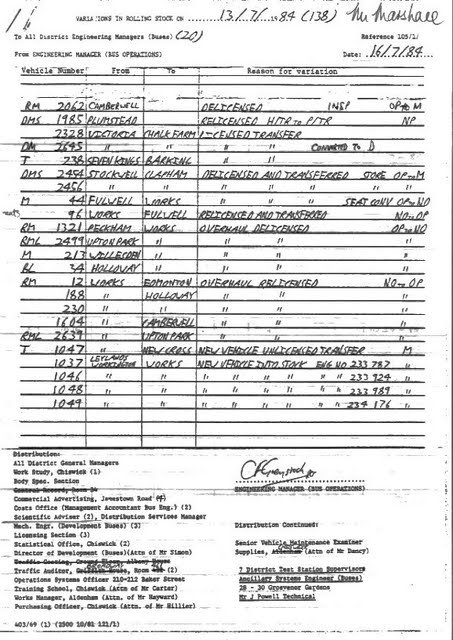 VARIATIONS IN ROLLING STOCK ON 13/7/1984 (138) Mr Marshall
To All District Engineering Managers (Buses) (20) Reference 105/1/
From ENGINEERING MANAGER (BUS OPERATIONS) Date: 16/7/84
Vehicle Number From To Reason for variation
RM 2062 CAMBERWELL DELICENSED INSP OP TO M
DMS 1985 PLUMSTEAD RELICENSED H/TR TO P/TR NP
2328 VICTORIA CHALK FARM LICENSED TRANSFER
DM 2645 " " " " CONVERTED TO D
T 238 SEVEN KINGS BARKING " "
DMS 2454 STOCKWELL CLAPHAM DELICENSED AND TRANSFERRED STORE OP TO M
2456 " " " " " " "
M 44 FULWELL WORKS " " SEAT CONV OP TO NO
96 WORKS FULWELL RELICENSED AND TRANSFERRED NO TO OP
RM 1321 PECKHAM WORKS OVERHAUL DELICENSED OP TO NO
RML 2499 UPTON PARK " " " "
M 213 WILLESDEN " " " "
BL 34 HOLLOWAY " " " "
RM 12 WORKS EDMONTON OVERHAUL RELICENSED NO TO OP
188 " HOLLOWAY " " "
230 " " " " "
1604 " CAMBERWELL " " "
RML 2639 " UPTON PARK " " "
T 1047 " NEW CROSS NEW VEHICLE UNLICENSED TRANSFER M
1037 LEYLANDS WORKINGTON WORKS NEW VEHICLE INTO STOCK ENG NO 233 787 "
1046 " " " " " " " " 233 924 "
1048 " " " " " " " " 233 989 "
1049 " " " " " " " " 234 176 "
Distribution:
All District General Managers
Work Study, Chiswick (2)
Body Spec. Section
General Record, Room 54
Commercial Advertising, Jamestown Road
Costs Office (Management Accountant Bus Eng.) (2)
Scientific Adviser (2), Distribution Services Manager
Mech. Engr. (Development Buses) (3)
Licensing Section (3)
Statistical Office, Chiswick (2)
Director of Development (Buses)(Attn of Mr Simon)
Traffic Auditor, Room (2)
Operations Systems Officer 210-212 Baker Street
Training School, Chiswick (Attn of Mr Carter)
Works Manager, Aldenham (Attn of Mr Hayward)
Purchasing Officer, Chiswick (Attn of Mr Hillier)
ENGINEERING MANAGER (BUS OPERATIONS)
Distribution Continued:
Senior Vehicle Maintenance Examiner
Supplies, Aldenham (Attn of Mr Dancy)
7 District Test Station Supervisors
Ancillary Systems Engineer (Buses)
28 - 30 Grosvenor Gardens
Mr J Powell Technical
403/69 (1) (2500 10/81 121/1)